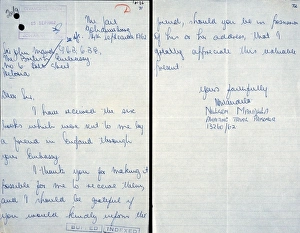 The Fort
Johannesburg
Sir John Maud
The British Embassy
Pretoria
Dear Sir,
I have received the six
books which were sent to me by
a friend in England through
your Embassy.
I thank you for making it
possible for me to receive them,
and I should be grateful if
you would kindly inform the
friend, should you be in possession
of his or her address, that I
greatly appreciate this valuable
present
Yours faithfully
NMandela
NELSON MANDELA
AWAITING TRIAL PRISONER
13260/62
INDEXED